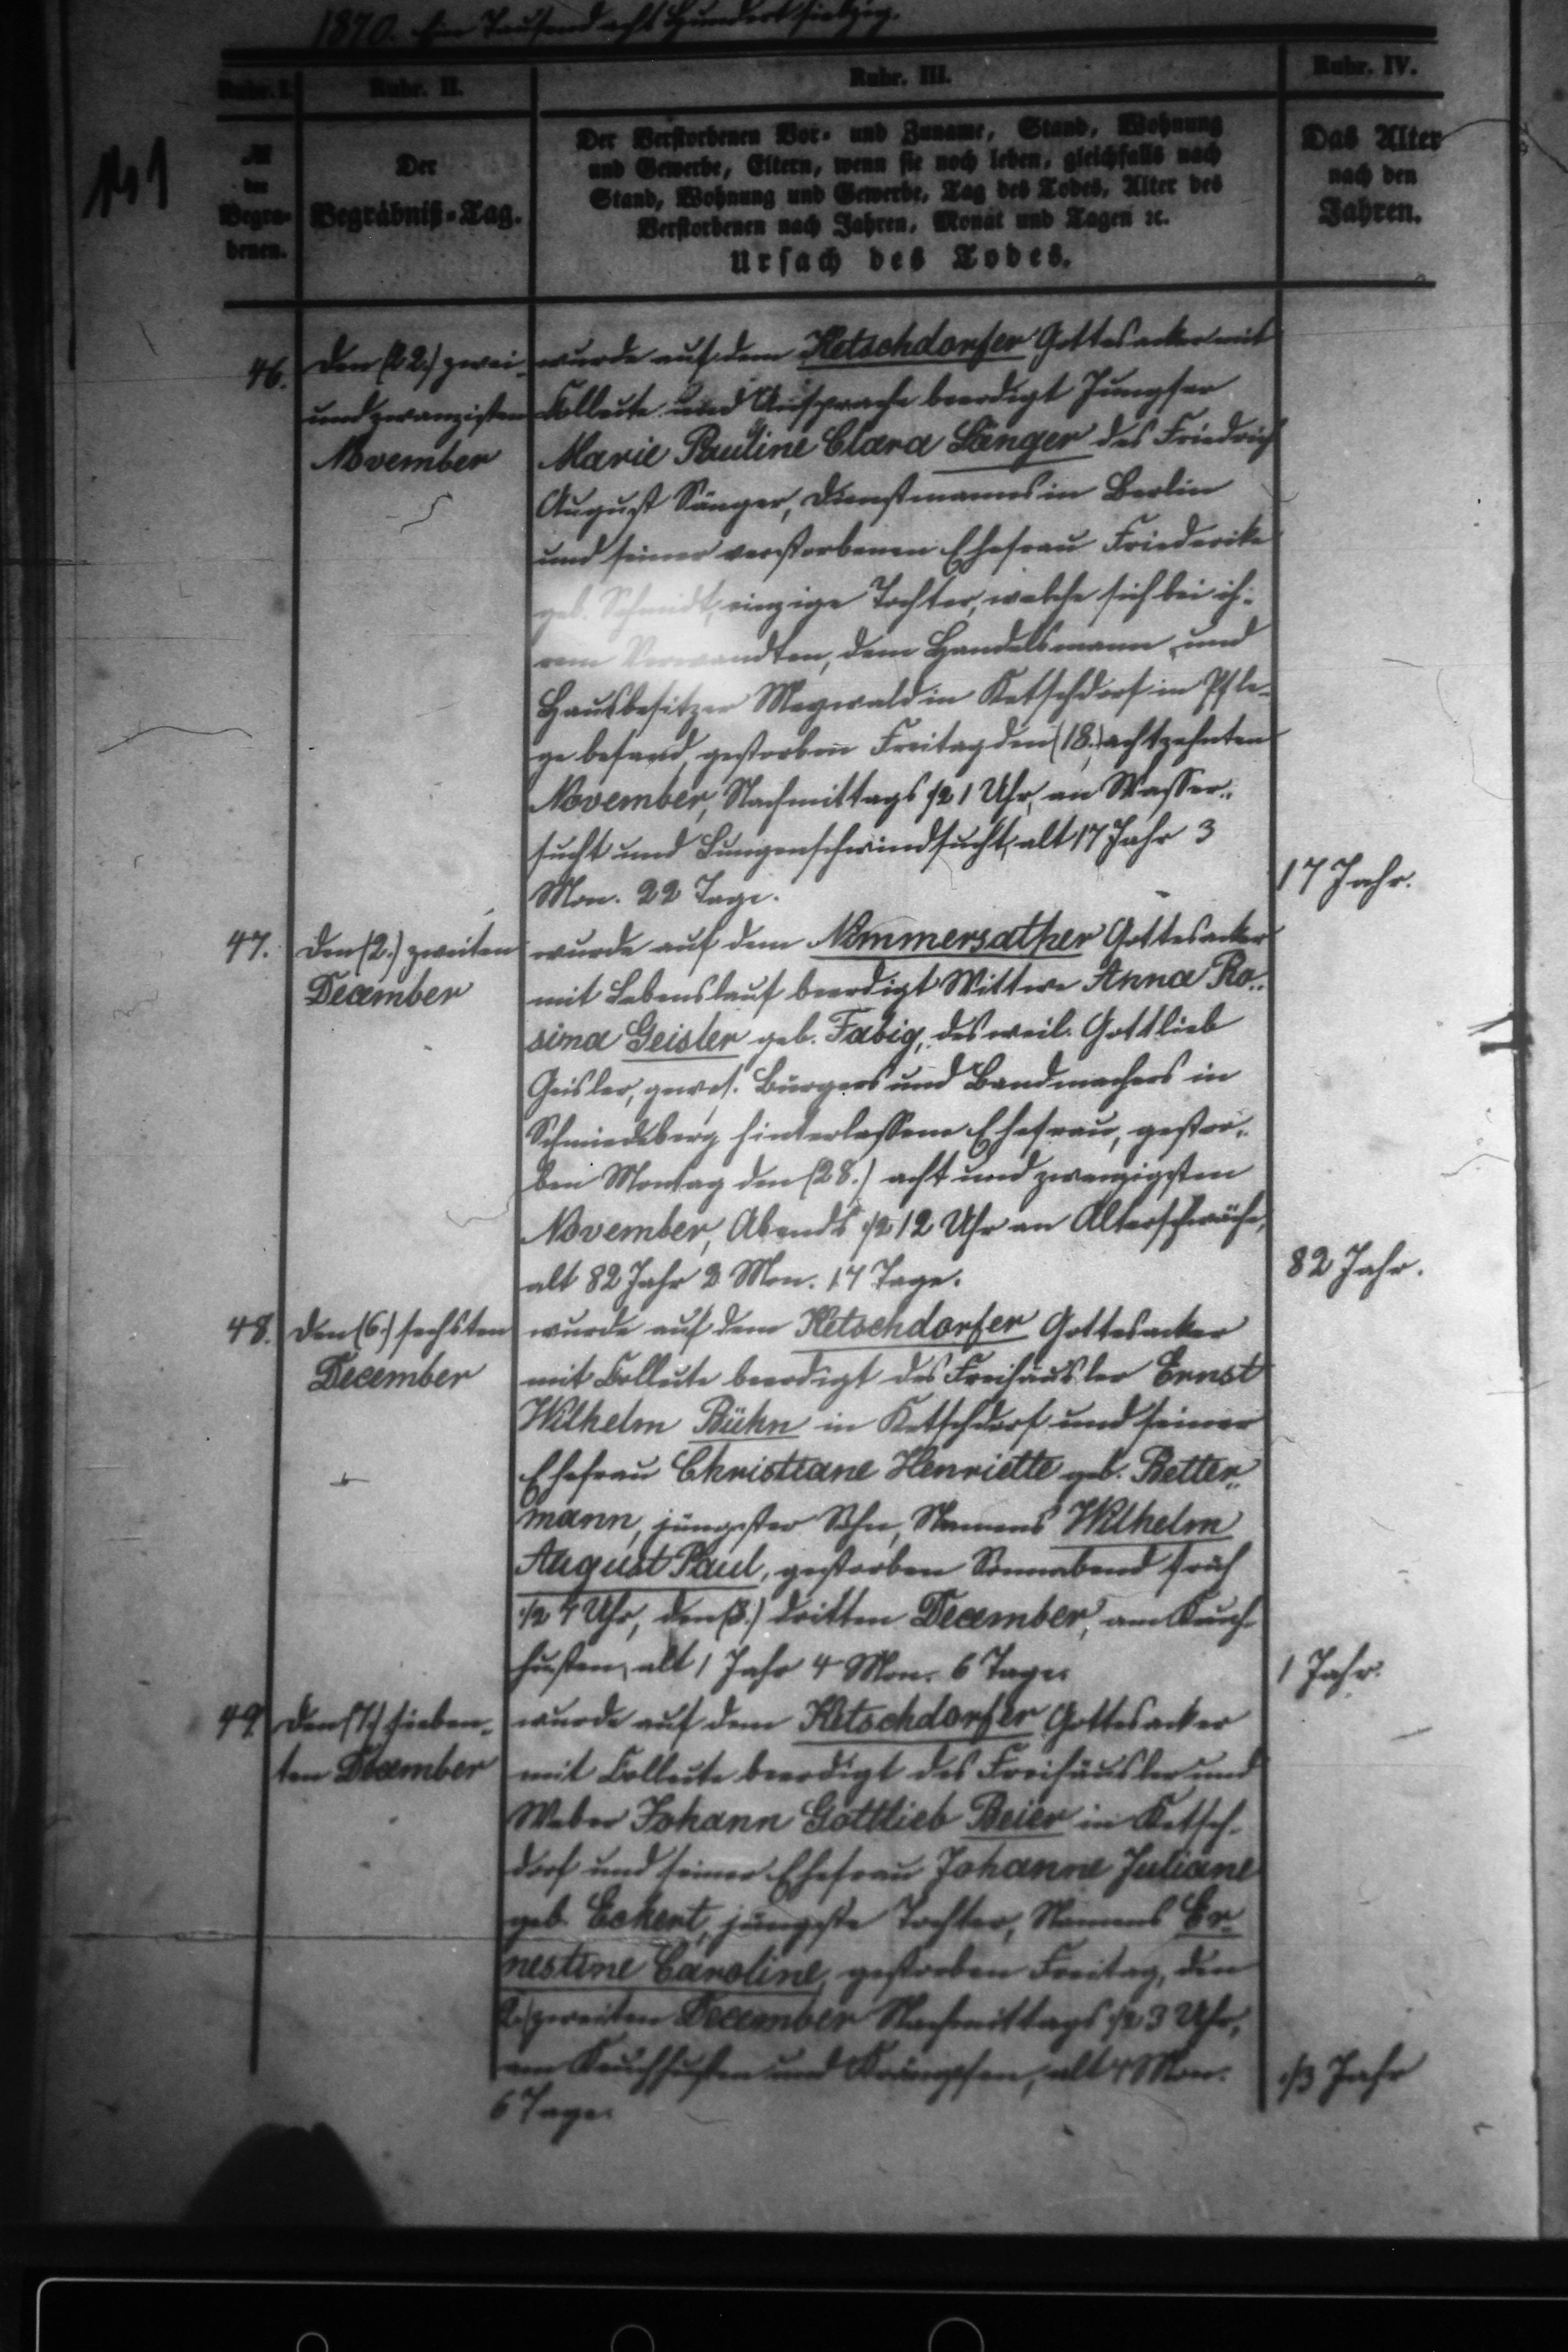 1870. Ein Tausend acht Hundert siebzig.
Rubr. I. Rubr. II. Rubr. III. Rubr. IV.
№ der Begra-benen.
Der Begräbniß-Tag.
Der Verstorbenen Vor- und Zuname, Stand, Wohnung
und Gewerbe, Eltern, wenn sie noch leben, gleichfalls nach
Stand, Wohnung und Gewerbe, Tag des Todes, Alter des
Verstorbenen nach Jahren, Monat und Tagen ꝛc.
Ursach des Todes.
Das Alter
nach den
Jahren.
46.
den (22.) zwei-
und zwanzigsten
November
wurde auf dem Ketschdorfer Gottesacker mit
Collecte und Ansprache beerdigt Jungfer
Marie Pauline Clara Sänger des Friedrich
August Sänger, Dienstmanns in Berlin
und seiner verstorbenen Ehefrau Friederike
geb. Schmidt, einzige Tochter, welche sich bei ih-
rem Verwandten, dem Handelsmann und
Hausbesitzer Maywald in Ketschdorf in Pfle-
ge befand, gestorben Freitag den (18.) achtzehnten
November, Nachmittags ½ 1 Uhr, an Wasser-
sucht und Lungenschwindsucht, alt 17 Jahr 3
Mon. 22 Tage.
17 Jahr.
47.
den (2.) zweiten
December
wurde auf dem Nimmersather Gottesacker
mit Lebenslauf beerdigt Wittwe Anna Ro-
sina Geisler geb. Fabig, des weil. Gottlieb
Geisler, gewes. Bürgers und Bandmachers in
Schmiedeberg hinterlassene Ehefrau, gestor-
ben Montag den (28.) acht und zwanzigsten
November, Abends ½ 12 Uhr an Altersschwäche,
alt 82 Jahr 2 Mon. 17 Tage.
82 Jahr.
48.
den (6.) sechsten
December
wurde auf dem Ketschdorfer Gottesacker
mit Collecte beerdigt des Freihäusler Ernst
Wilhelm Bühn in Ketschdorf und seiner
Ehefrau Christiane Henriette geb. Better-
mann, jüngster Sohn, Namens Wilhelm
August Paul, gestorben Sonnabend früh
½ 4 Uhr, den (3.) dritten December, am Keuch-
husten, alt 1 Jahr 4 Mon. 6 Tage.
1 Jahr.
49.
den (7.) sieben-
ten December
wurde auf dem Ketschdorfer Gottesacker
mit Collecte beerdigt des Freihäusler und
Weber Johann Gottlieb Beier in Ketsch-
dorf und seiner Ehefrau Johanne Juliane
geb. Eckert, jüngste Tochter, Namens Er-
nestine Caroline, gestorben Freitag, den
(2.) zweiten December Nachmittags ½ 3 Uhr,
am Keuchhusten und Krämpfen, alt 4 Mon.
6 Tage.
⅓ Jahr